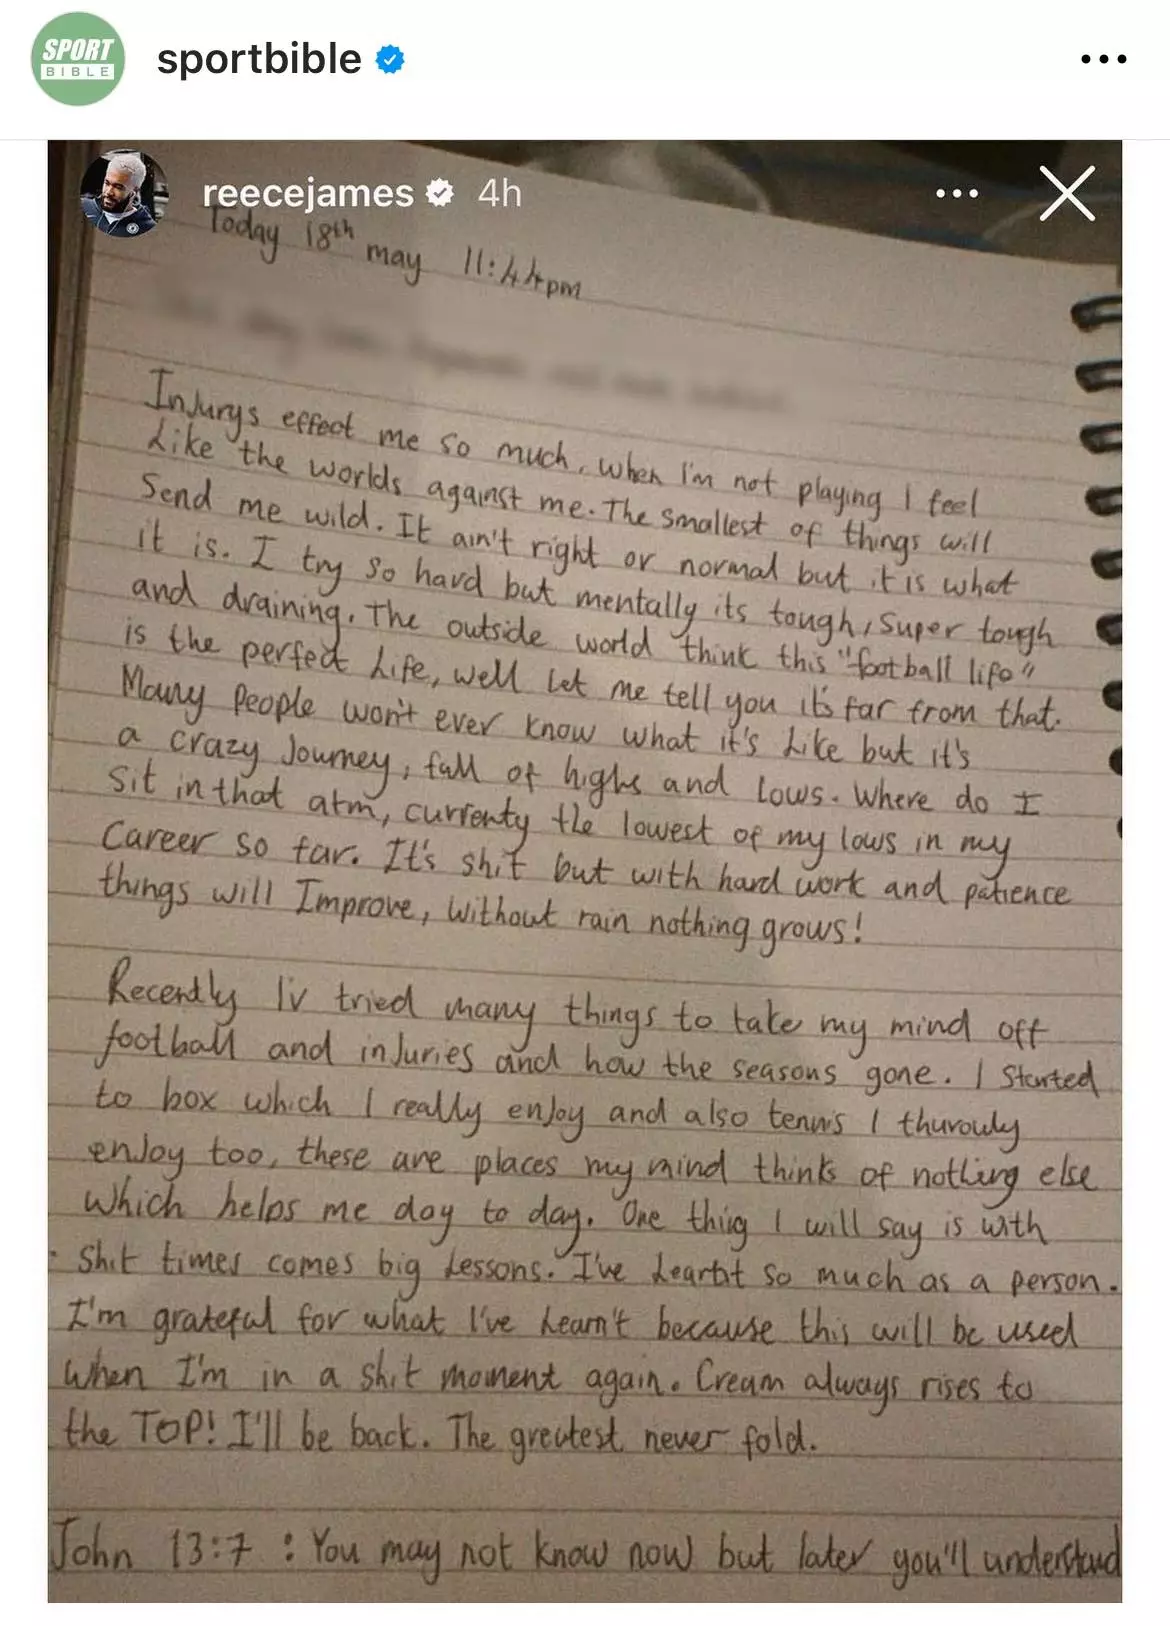 SPORT
BIBLE
sportbible
reecejames 4h
Today 18th may 11:44pm
Injurys effect me so much, when I'm not playing I feel
Like the worlds against me. The smallest of things will
Send me wild. It ain't right or normal but it is what
it is. I try so hard but mentally its tough, super tough
and draining. The outside world think this "football life"
is the perfect Life, well let me tell you it's far from that.
Many people won't ever know what it's Like but it's
a crazy Journey, full of highs and lows. Where do I
Sit in that atm, currenty the lowest of my lows in my
Career so far. It's shit but with hard work and patience
things will Improve, without rain nothing grows!
Recently I'v tried many things to take my mind off
football and inJuries and how the seasons gone. I Started
to box which I really enjoy and also tennis I thurouly
enJoy too, these are places my mind thinks of nothing else
which helps me day to day. One thing I will say is with
Shit times comes big Lessons. I've Learnt so much as a person.
I'm grateful for what I've Learn't because this will be used
when I'm in a shit moment again. Cream always rises to
the TOP! I'll be back. The greatest never fold.
John 13:7 : You may not know now but later you'll understand